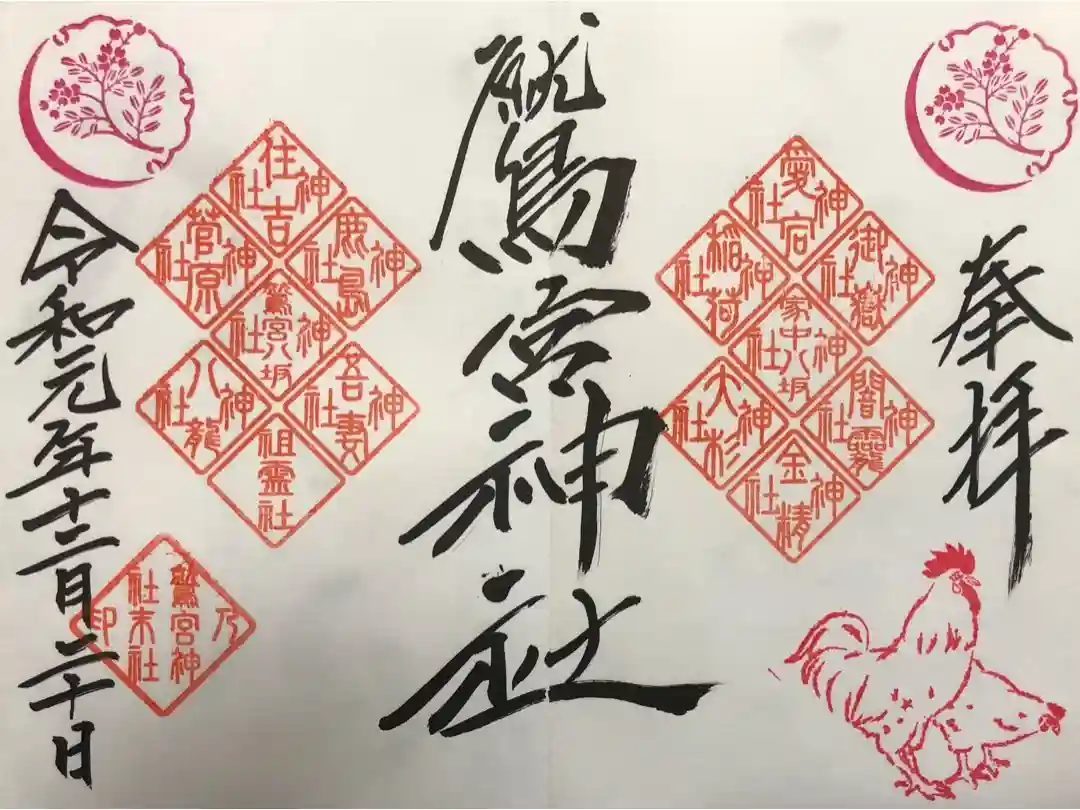 奉拝
愛宕神社
御嶽神社
稲荷神社
家中八坂神社
闇龗神社
大杉神社
金精神社
鷲宮神社
住吉神社
鹿島神社
菅原神社
鷲宮八坂神社
吾妻神社
八龍神社
祖霊社
鷲宮神社末社乃印
令和元年十二月二十日